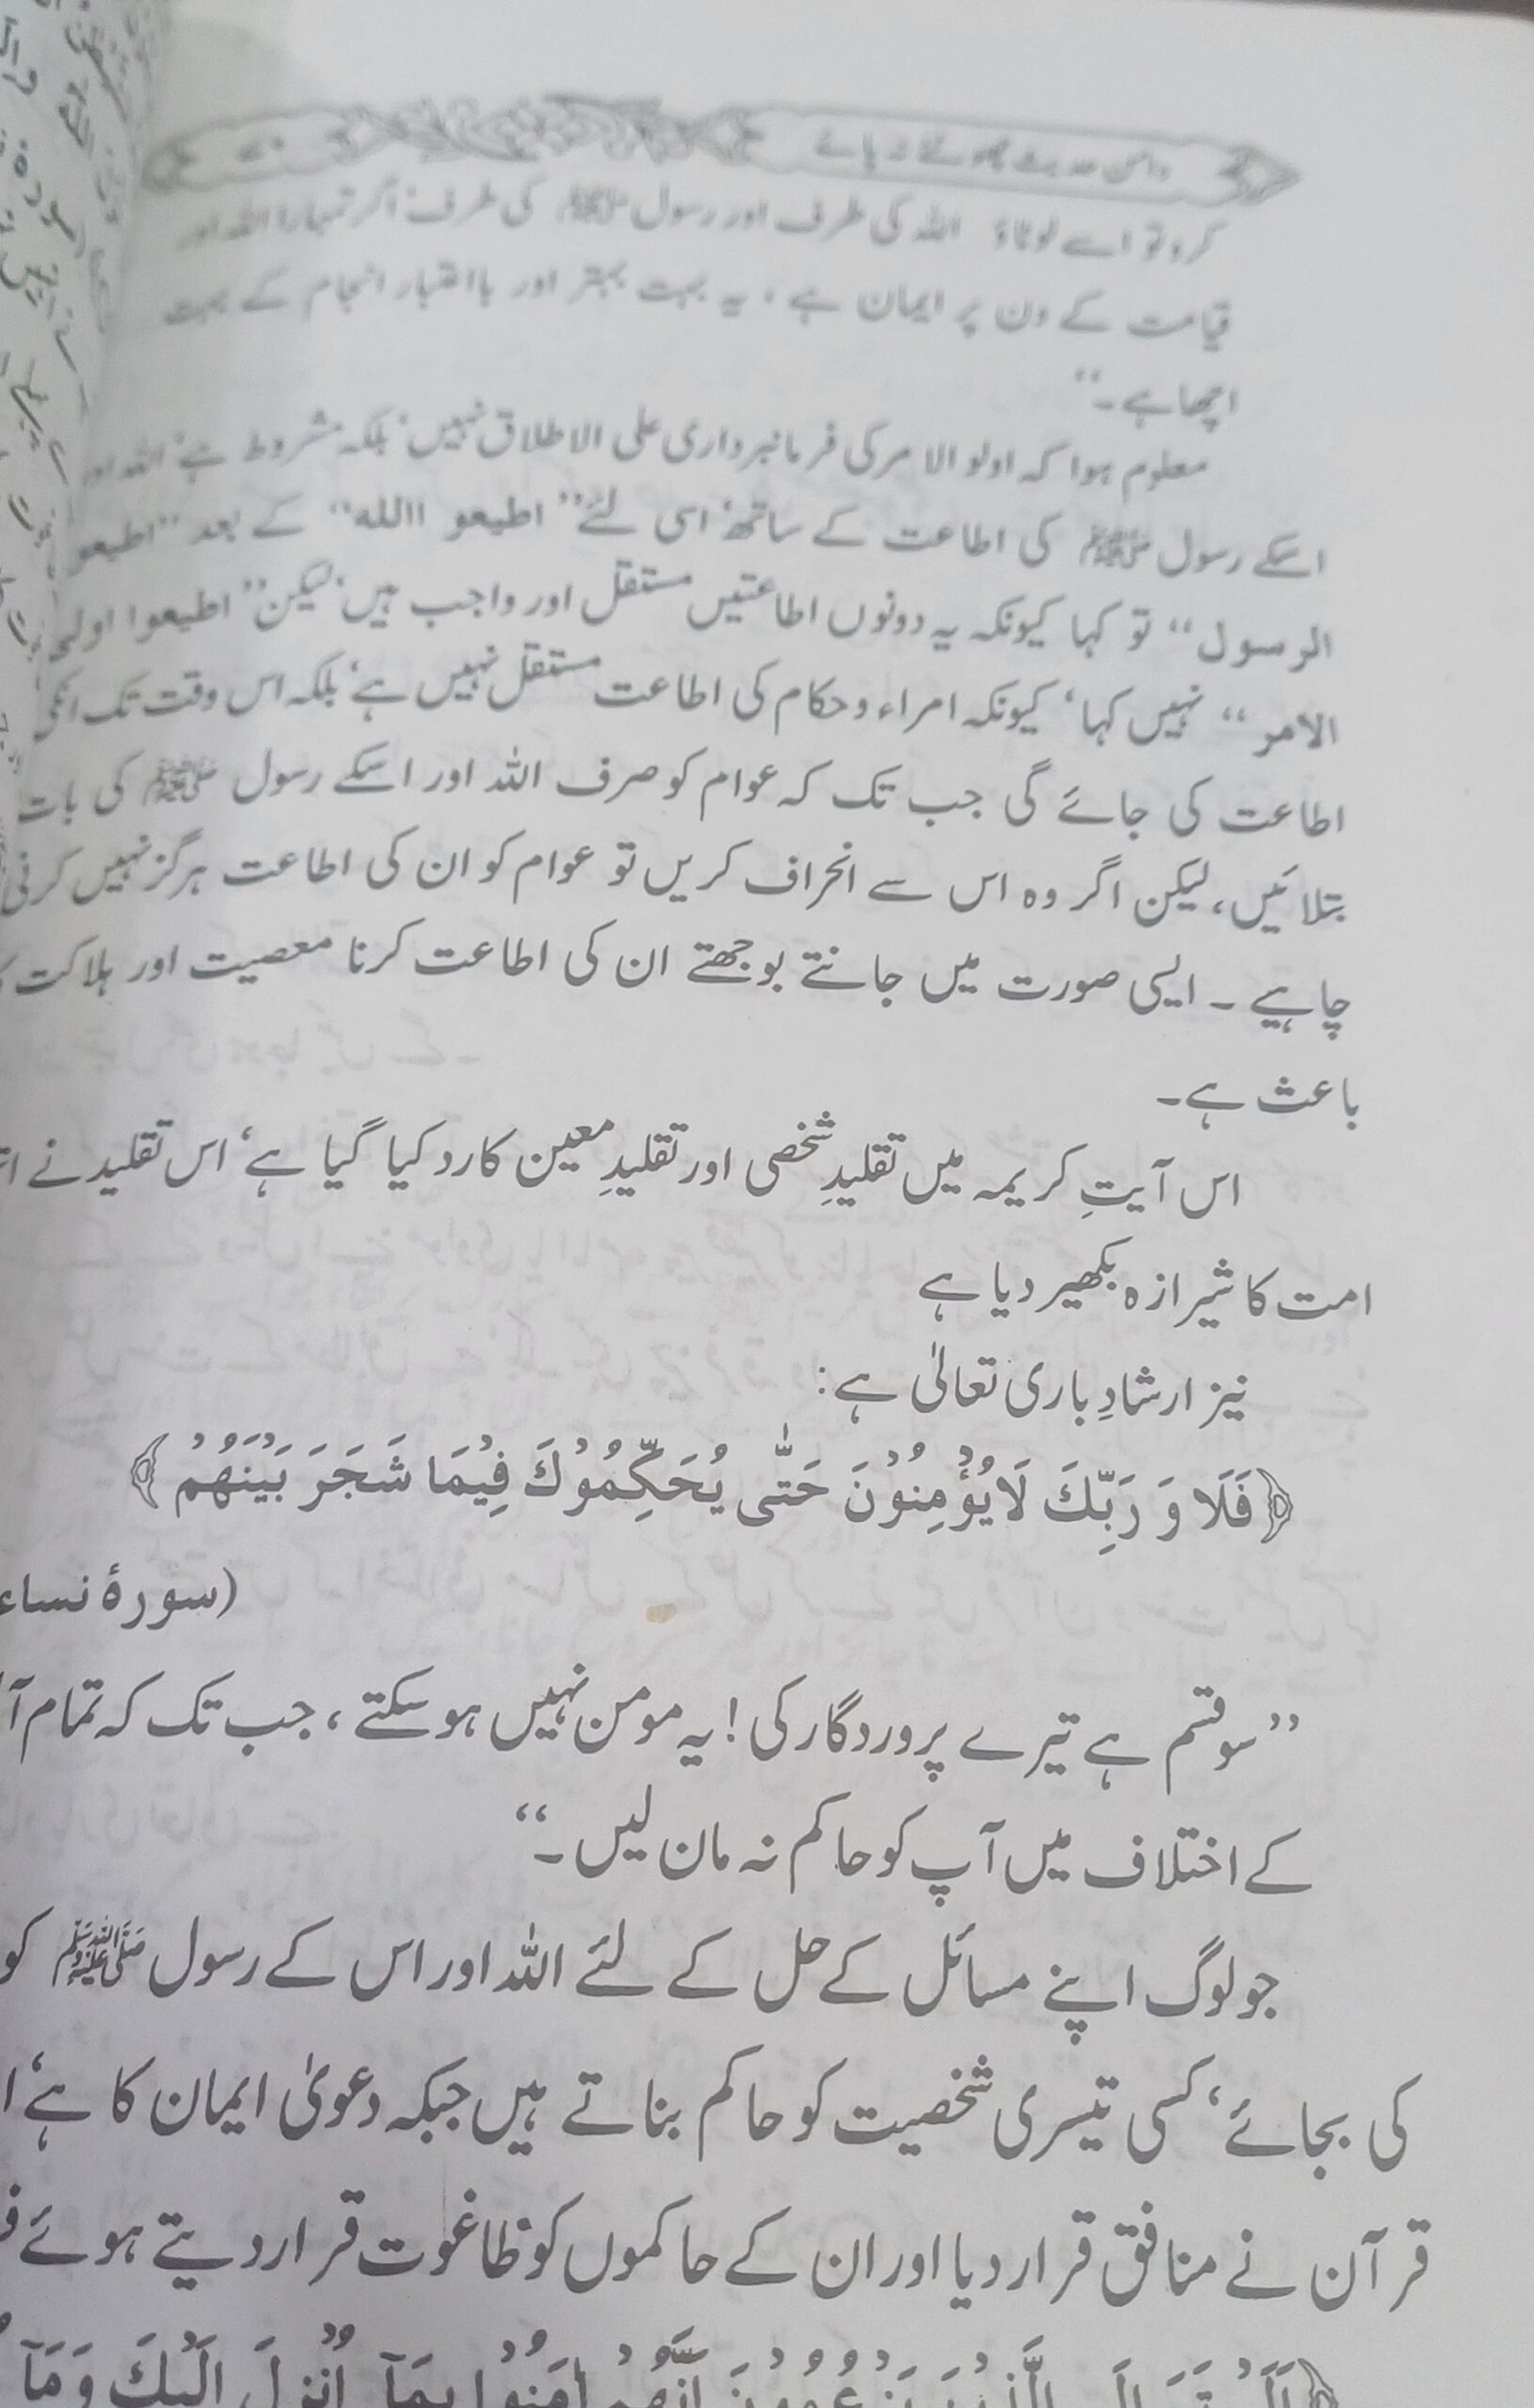 دامن حدیث چھوٹنے نہ پائے
کرو تو اسے لوٹاؤ اللہ کی طرف اور رسول ﷺ کی طرف، اگر تمہارا اللہ اور
قیامت کے دن پر ایمان ہے، یہ بہت بہتر اور بااعتبار انجام کے بہت
اچھا ہے۔“
معلوم ہوا کہ اولوالامر کی فرمانبرداری علی الاطلاق نہیں، بلکہ مشروط ہے، اللہ اور
اسکے رسول ﷺ کی اطاعت کے ساتھ، اسی لئے ”اطیعو االله“ کے بعد ”اطیعو
الرسول“ تو کہا کیونکہ یہ دونوں اطاعتیں مستقل اور واجب ہیں، لیکن ”اطیعوا اولی
الامر“ نہیں کہا، کیونکہ امراء و حکام کی اطاعت مستقل نہیں ہے، بلکہ اس وقت تک انکی
اطاعت کی جائے گی جب تک کہ عوام کو صرف اللہ اور اسکے رسول ﷺ کی بات
بتلائیں، لیکن اگر وہ اس سے انحراف کریں تو عوام کو ان کی اطاعت ہرگز نہیں کرنی
چاہیے۔ ایسی صورت میں جانتے بوجھتے ان کی اطاعت کرنا معصیت اور ہلاکت
باعث ہے۔
اس آیتِ کریمہ میں تقلیدِ شخصی اور تقلیدِ معین کا رد کیا گیا ہے، اس تقلید نے
امت کا شیرازہ بکھیر دیا ہے
نیز ارشادِ باری تعالٰی ہے:
﴿فَلَا وَ رَبِّكَ لَا يُؤْمِنُوْنَ حَتّٰى يُحَكِّمُوْكَ فِيْمَا شَجَرَ بَيْنَهُمْ﴾
(سورۂ نساء
”سو قسم ہے تیرے پروردگار کی! یہ مومن نہیں ہو سکتے، جب تک کہ تمام
کے اختلاف میں آپ کو حاکم نہ مان لیں۔“
جو لوگ اپنے مسائل کے حل کے لئے اللہ اور اس کے رسول ﷺ کو
کی بجائے، کسی تیسری شخصیت کو حاکم بناتے ہیں جبکہ دعویٰ ایمان کا ہے،
قرآن نے منافق قرار دیا اور ان کے حاکموں کو طاغوت قرار دیتے ہوئے
﴿اَلَمْ تَرَ اِلَى الَّذِيْنَ يَزْعُمُوْنَ اَنَّهُمْ اٰمَنُوْا بِمَآ اُنْزِلَ اِلَيْكَ وَمَآ